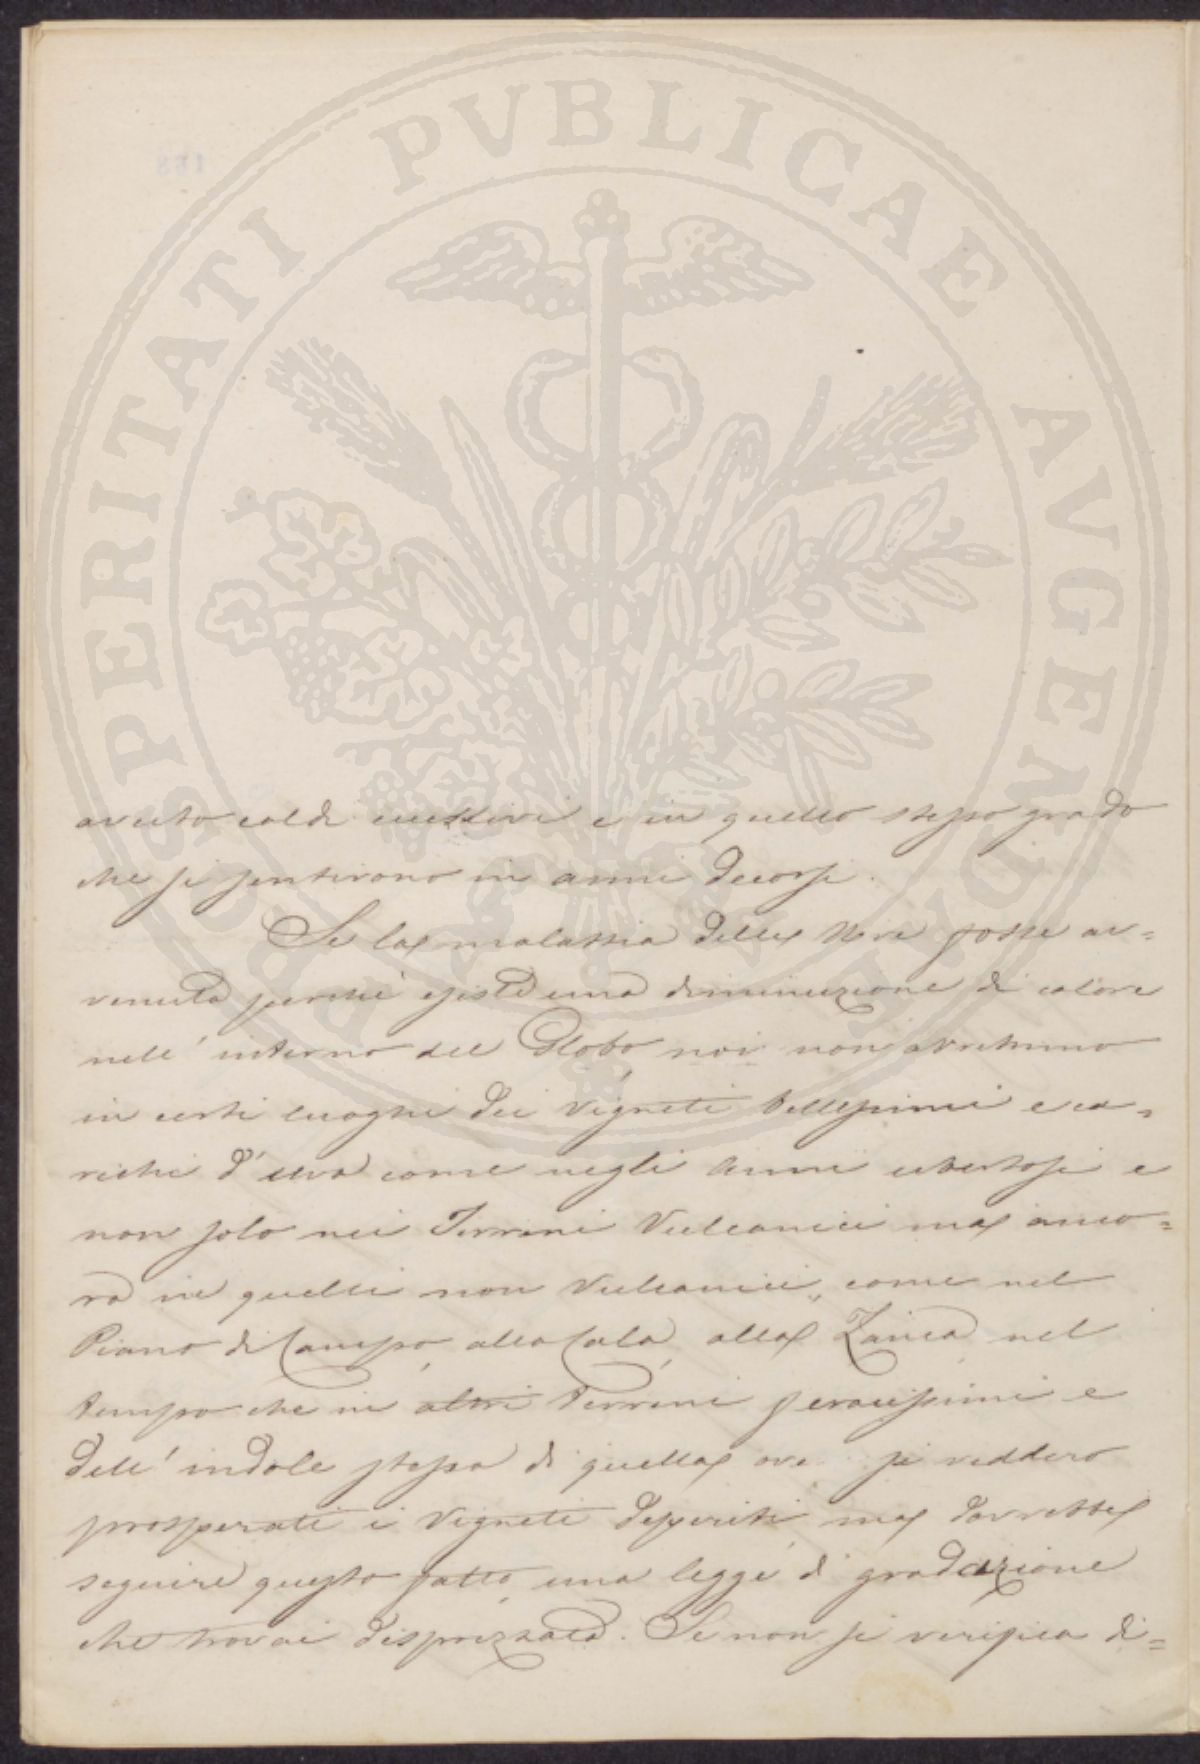 PROSPERITATI PVBLICAE AVGENDAE
avuto caldi eccessivi e in quello stesso grado
che si sentirono in anni decorsi.
Se la malattia delle Uve fosse av=
venuta perché esiste una diminuzione di calore
nell'interno del Globo noi non avressimo
in certi luoghi dei Vigneti bellissimi e ca=
richi d'uva come negli Anni ubertosi e
non solo nei Terreni Vulcanici ma anco=
ra in quelli non Vulcanici, come nel
Piano di Campo alla Cala, alla Zanca nel
tempo che in altri terreni feracissimi e
dell'indole stessa di quella ove si veddero
prosperati i Vigneti deperiti ma dovrebbe
seguire questo fatto una legge di gradazione
che trovai disprezzata. Se non si verifica di=